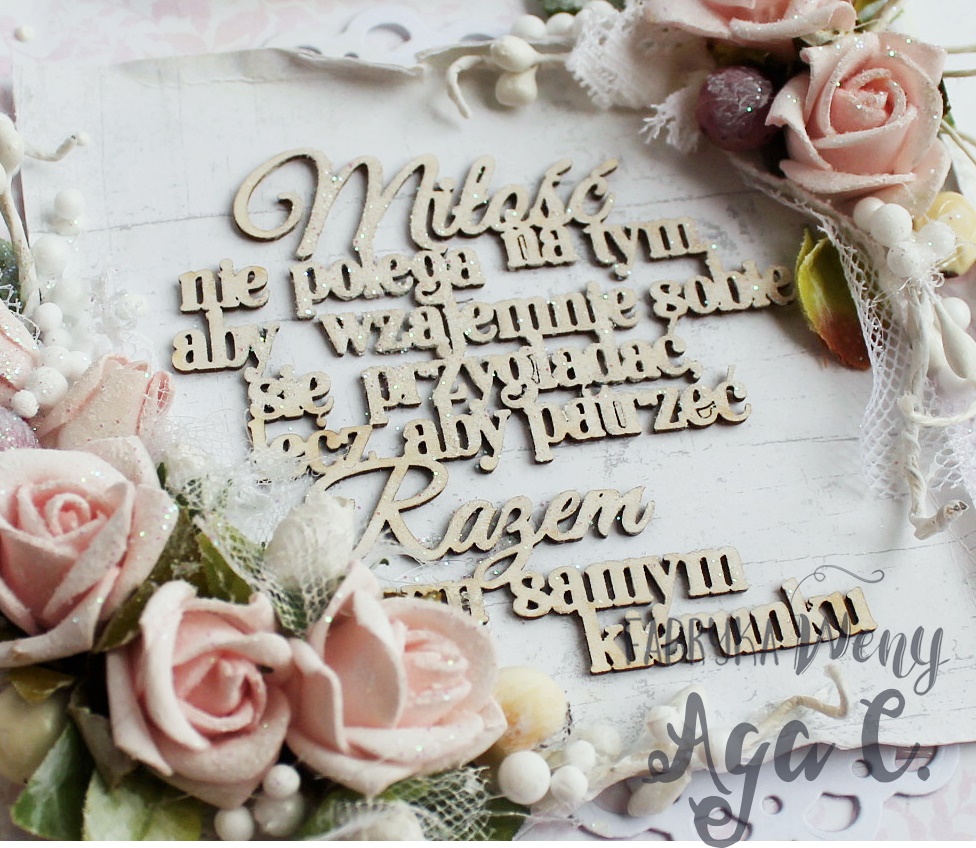 Miłość
nie polega na tym
aby wzajemnie sobie
się przyglądać,
lecz aby patrzeć
Razem
samym
kierunku
FABRYKA Weny
Aga C.